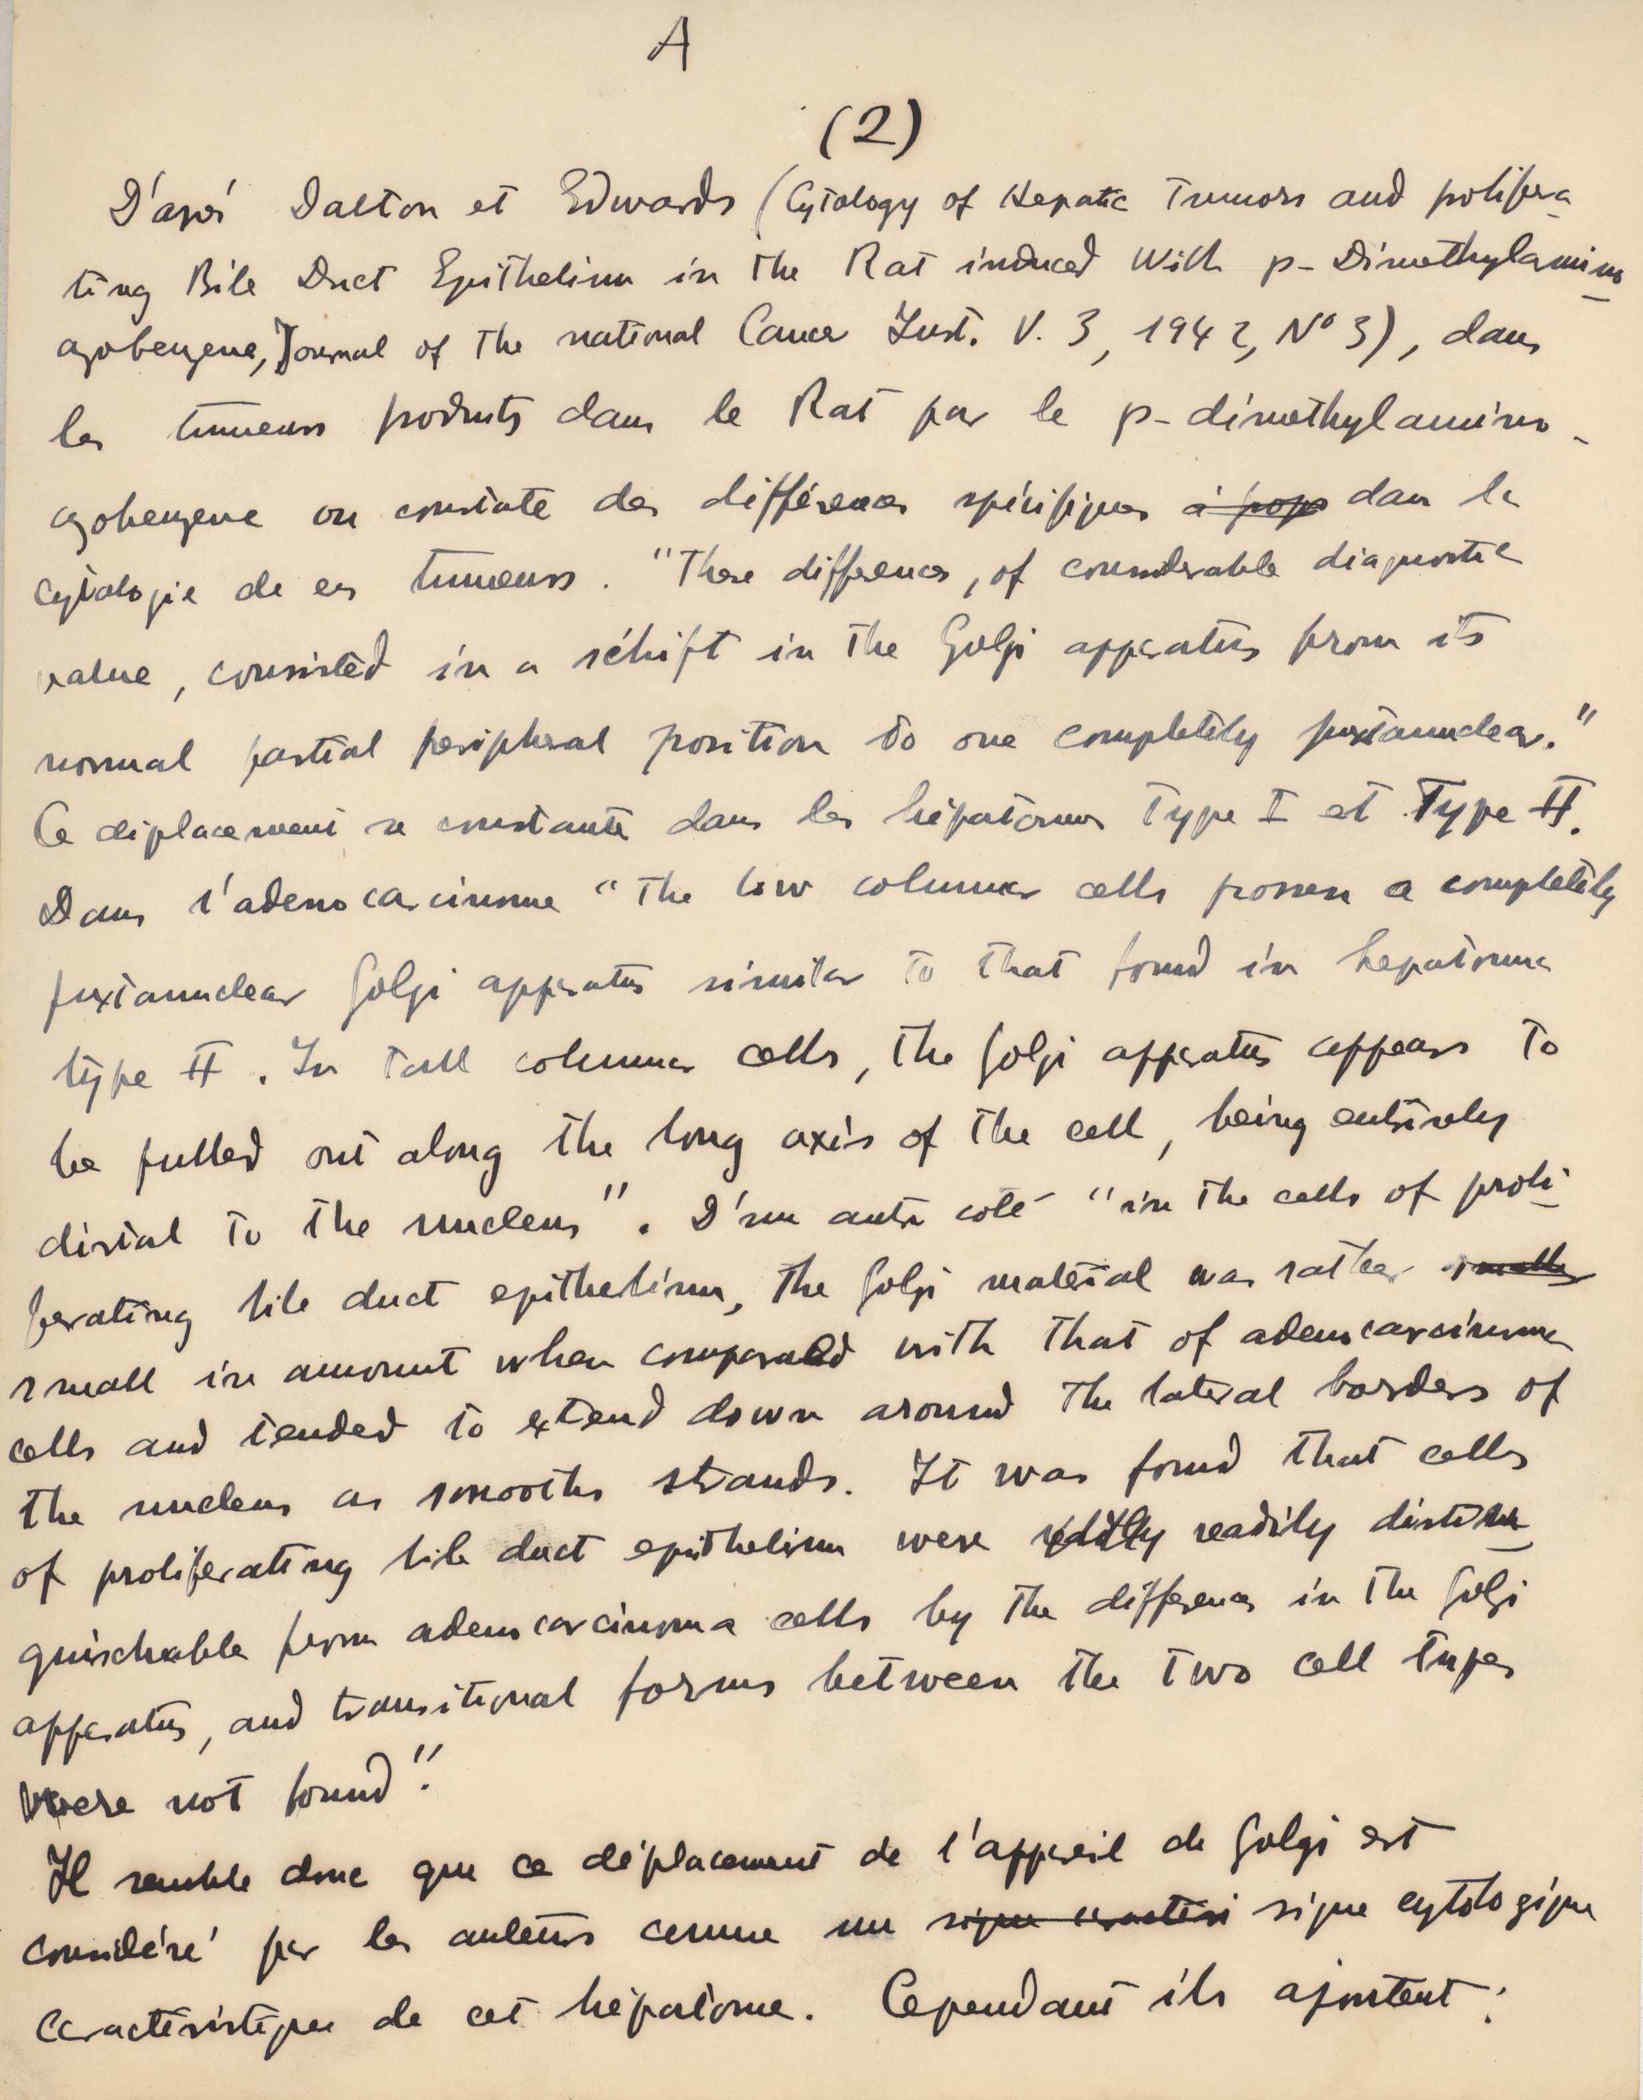 A
(2)
D'aprés Dalton et Edwards (Cytology of Hepatic Tumors and prolifera-
ting Bile Duct Epithelium in the Rat induced With p-Dimethylamino-
azobenzene, Journal of the national Cancer Inst. V. 3, 1942, N° 3), dans
les tumeurs produits dans le Rat par le p-dimethylamino-
azobenzene on constate des différences spécifiques a prop dans la
cytologie de ces tumeurs. "These differences, of considerable diagnostic
value, consisted in a schift in the Golgi apperatus from its
normal partial peripheral position to one completely juxtanuclear."
Ce déplacement se constante dans les hépatomes Type I et Type II.
Dans l'adenocarcinome "the low columnar cells possess a completely
juxtanuclear Golgi apperatus similar to that found in hepatoma
type II. In tall columnar cells, the Golgi apperatus appears to
be pulled out along the long axis of the cell, being entirely
distal to the nucleus". D'un autre coté "in the cells of proli-
ferating bile duct epithelium, the Golgi material was rather smaller
small in amount when compared with that of adenocarcinoma
cells and tended to extend down around the lateral borders of
the nucleus as smooths strands. It was found that cells
of proliferating bile duct epithelium were readily distin-
guischable from adenocarcinoma cells by the differences in the Golgi
apperatus, and transitional forms between the two cell types
were not found".
Il semble donc que ce déplacement de l'appareil de Golgi est
considéré par les auteurs comme un signe caractéri signe cytologique
caracteristique de cet hépatome. Cependant ils ajoutent: